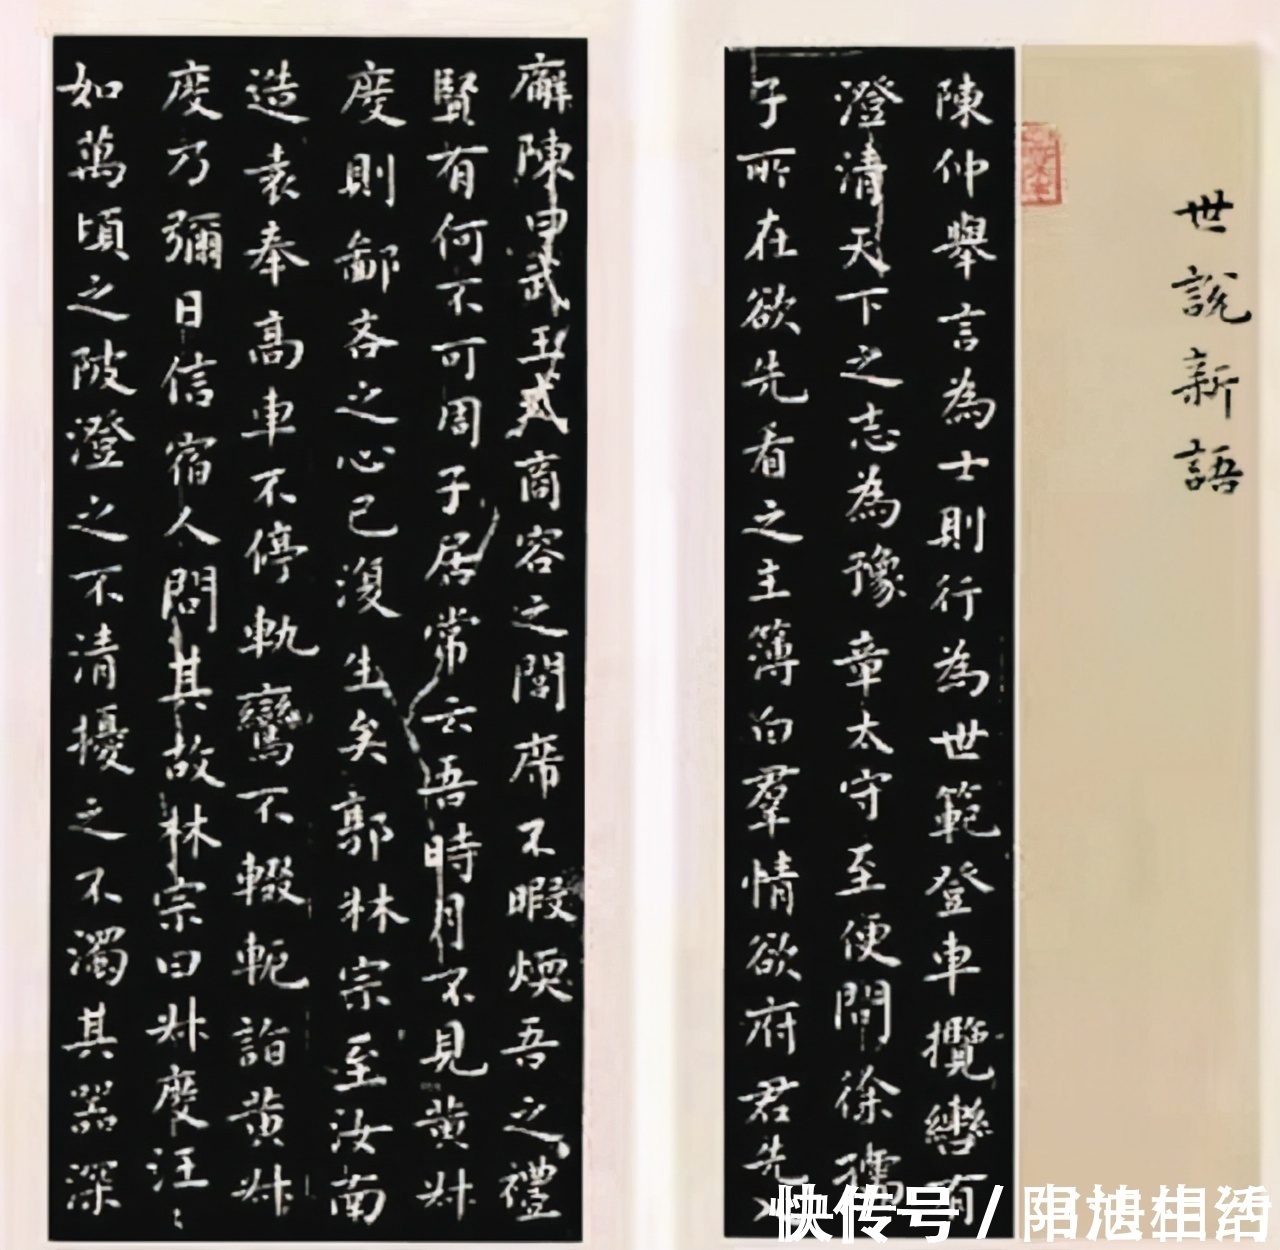 世說新語
陳仲舉言為士則行為世範登車攬轡有
澄清天下之志為豫章太守至便問徐孺
子所在欲先看之主簿白羣情欲府君先入
廨陳曰武王式商容之閭席不暇煖吾之禮
賢有何不可周子居常云吾時月不見黃叔
度則鄙吝之心已復生矣郭林宗至汝南
造袁奉高車不停軌鸞不輟軛詣黃叔
度乃彌日信宿人問其故林宗曰叔度汪〻
如萬頃之陂澄之不清擾之不濁其器深
快传号/阳旭生活